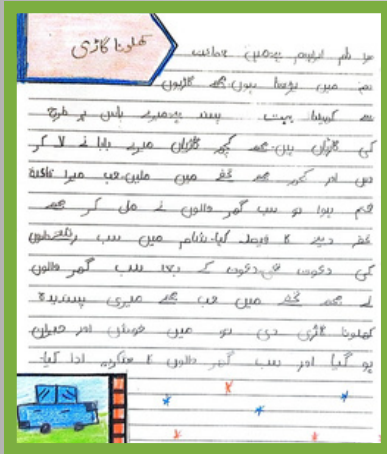 کھلونا گاڑی
میرا نام ابراہیم ہے۔میں جماعت
میں پڑھتا ہوں۔مجھے گاڑیوں
سے کھیلنا بہت پسند ہے۔میرے پاس ہر طرح
کی گاڑیاں ہیں۔مجھے کچھ گاڑیاں میرے بابا نے لا کر
دیں اور کچھ مجھے تحفے میں ملیں۔جب میرا
ختم ہوا تو سب گھر والوں نے مل کر مجھے
تحفہ دینے کا فیصلہ کیا۔شام میں سب رشتےداروں
کی دعوت تھی۔دعوت کے بعد سب گھر والوں
نے مجھے تحفے میں جب مجھے میری پسندیدہ
کھلونا گاڑی دی تو میں خوش اور حیران
ہو گیا اور سب گھر والوں کا شکریہ ادا کیا۔